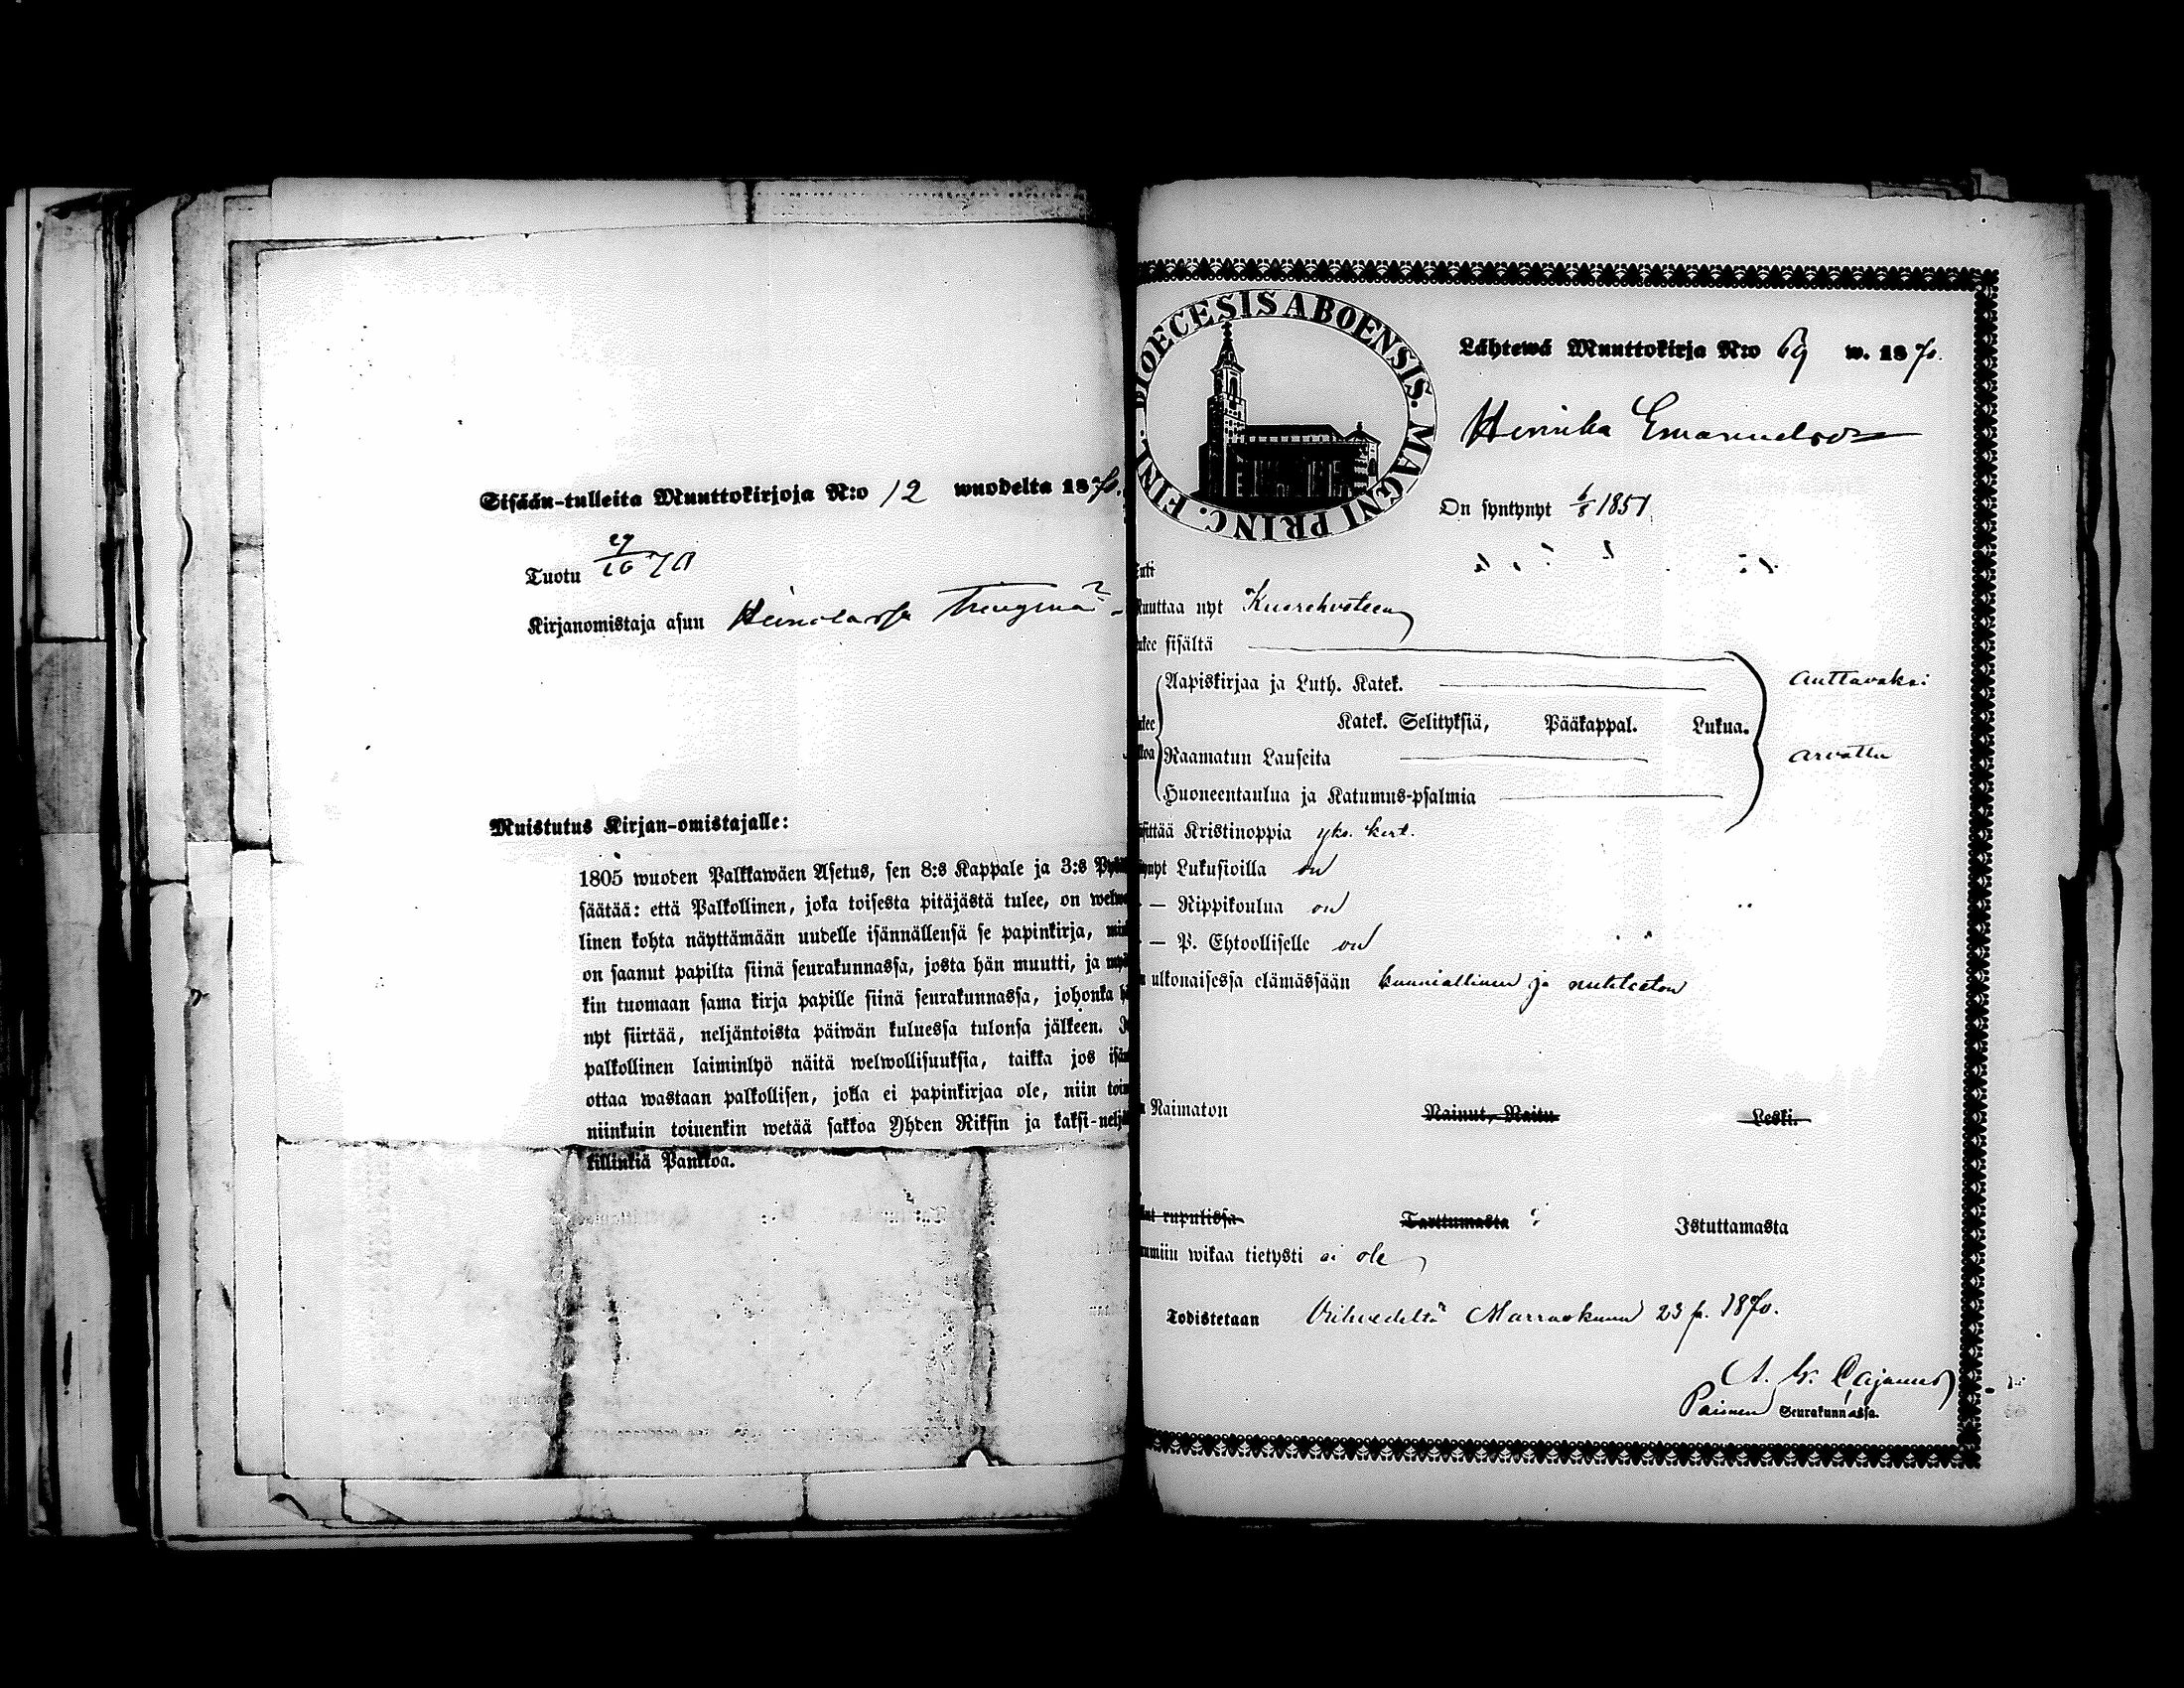 Sisään-tulleita Muuttokirjoja N:o 12 wuodelta 1870.
Tuotu 70
Kirjanomistaja asuu
Muistutus Kirjan-omistajalle:
1805 wuoden Palkkawäen Asetus, sen 8:s Kappale ja 3:s
säätää: että Palkollinen, joka toisesta pitäjästä tulee, on
linen kohta näyttämään uudelle isännällensä se papinkirja,
on saanut papilta siinä seurakunnassa, josta hän muutti, ja
kin tuomaan sama kirja papille siinä seurakunnassa, johonka
nyt siirtää, neljäntoista päiwän kuluessa tulonsa jälkeen.
palkollinen laiminlyö näitä welwollisuuksia, taikka jos
ottaa wastaan palkollisen, jolla ei papinkirjaa ole, niin
niinkuin toinenkin wetää sakkoa Yhden Riksin ja kaksi-
killinkiä Pankkoa.
DIOECESIS ABOENSIS. MAGNI PRINC. FINL.
Lähtewä Muuttokirja N:o 69 w. 1870.
Emanuelson
On syntynyt 1851
uuttaa nyt
ukee sisältä
Aapiskirjaa ja Luth. Katek. auttavaksi
Katek. Selityksiä, Pääkappal. Lukua.
Raamatun Lauseita arvattu
Huoneentaulua ja Katumus-psalmia
sittää Kristinoppia yks. kert.
ynyt Lukusioilla on
— Rippikoulua on
— P. Ehtoolliselle on
n ulkonaisessa elämässään kunniallinen ja nuhteeton
Naimaton Nainut, Naitu Leski.
rupulissa Tarttumasta Istuttamasta
mmiin wikaa tietysti ei ole
Todistetaan Marraskuun 23 p. 1870.
Cajanus
Seurakunnassa.